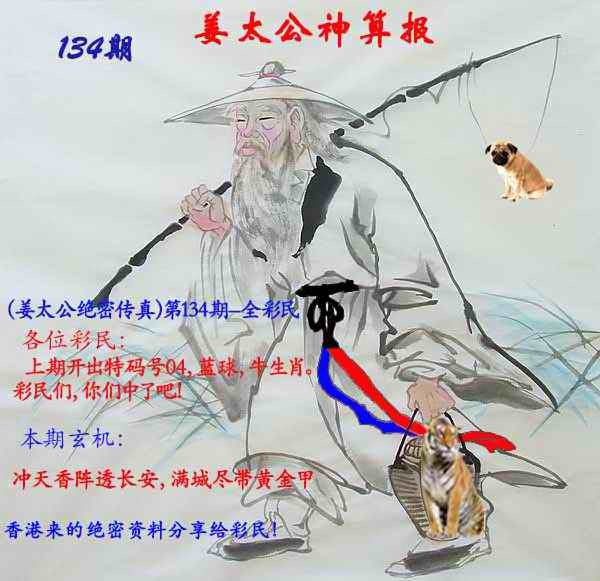 134期
姜太公神算报
(姜太公绝密传真)第134期–全彩民
各位彩民:
上期开出特码号04,蓝球,牛生肖。
彩民们,你们中了吧!
本期玄机:
冲天香阵透长安,满城尽带黄金甲
香港来的绝密资料分享给彩民!